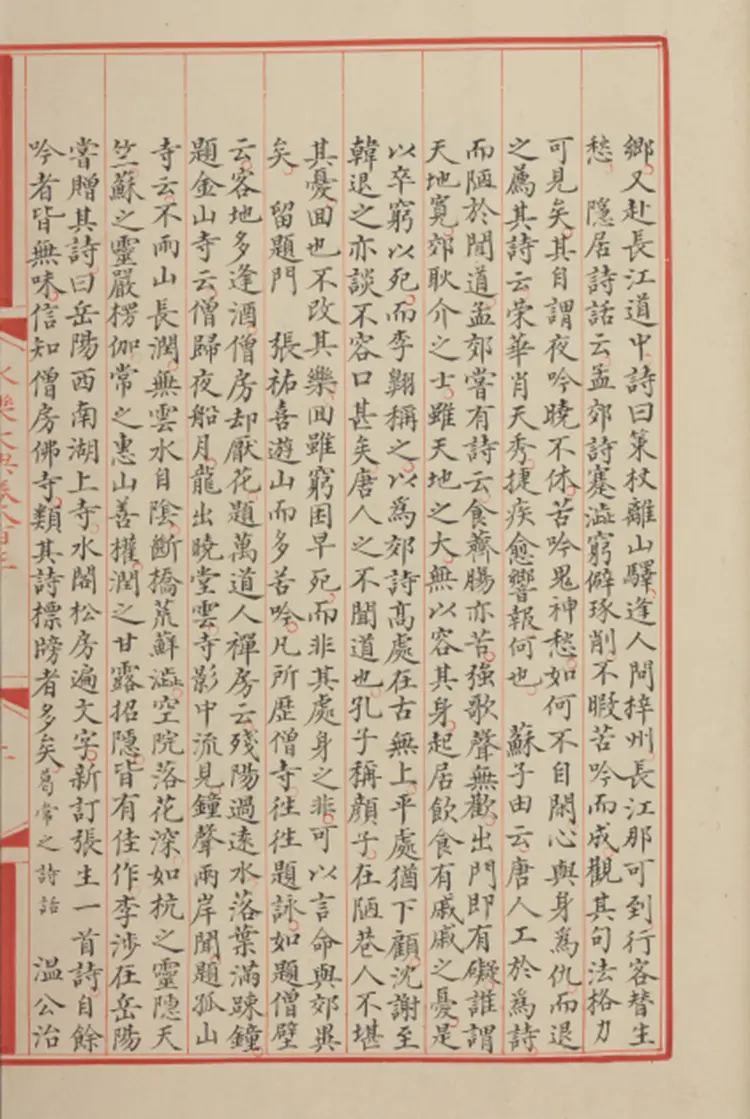 鄉又赴長江道中詩曰策杖離山驛逢人問梓州長江那可到行客替生
愁　隱居詩話云孟郊詩蹇澁窮僻琢削不暇苦吟而成觀其句法格力
可見矣其自謂夜吟曉不休苦吟鬼神愁如何不自閑心與身爲仇而退
之薦其詩云榮華肖天秀捷疾愈響報何也　蘇子由云唐人工於爲詩
而陋於聞道孟郊嘗有詩云食薺腸亦苦強歌聲無歡出門即有礙誰謂
天地寛郊耿介之士雖天地之大無以容其身起居飲食有戚戚之憂是
以卒窮以死而李翺稱之以爲郊詩髙處在古無上平處猶下顧沈謝至
韓退之亦談不容口甚矣唐人之不聞道也孔子稱顔子在陋巷人不堪
其憂回也不改其樂回雖窮困早死而非其處身之非可以言命與郊異
矣　留題門　張祐喜遊山而多苦吟凡所歴僧寺徃徃題詠如題僧壁
云客地多逢酒僧房却厭花題萬道人禪房云殘陽過逺水落葉滿踈鐘
題金山寺云僧歸夜船月龍出曉堂雲寺影中流見鐘聲兩岸聞題孤山
寺云不雨山長潤無雲水自陰斷橋荒蘚澁空院落花深如杭之靈隱天
竺蘇之靈嚴楞伽常之惠山善權潤之甘露招隱皆有佳作李涉在岳陽
嘗贈其詩曰岳陽西南湖上寺水閣松房遍文字新訂張生一首詩自餘
吟者皆無味信知僧房佛寺類其詩標牓者多矣葛常之詩話　溫公治